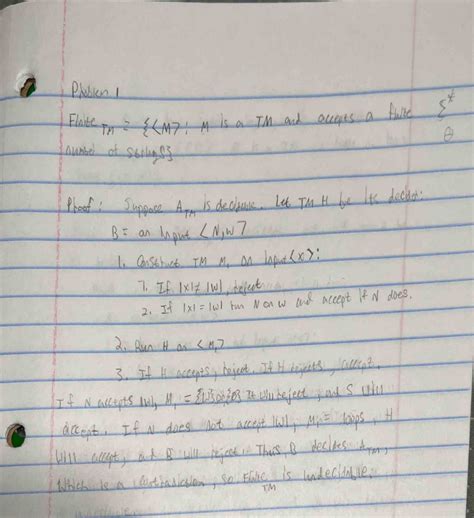 Problem 1
Finite TM = {<M>: M is a TM and accepts a finite Σ*
number of strings}
Proof: Suppose A TM is decidable. Let TM H be its decider:
B = on input <N,w>
1. Construct TM M, on input <x>:
1. If |x| ≠ |w|, reject
2. If |x| = |w| run N on w and accept if N does.
2. Run H on <M,>
3. If H accepts, reject. If H rejects, accept.
If N accepts |w|, M, = it will reject, and S will
accept. If N does not accept |w|, M, = loops, H
will accept, and B will reject. Thus B decides A TM,
which is a contradiction, so Finite TM is undecidable.